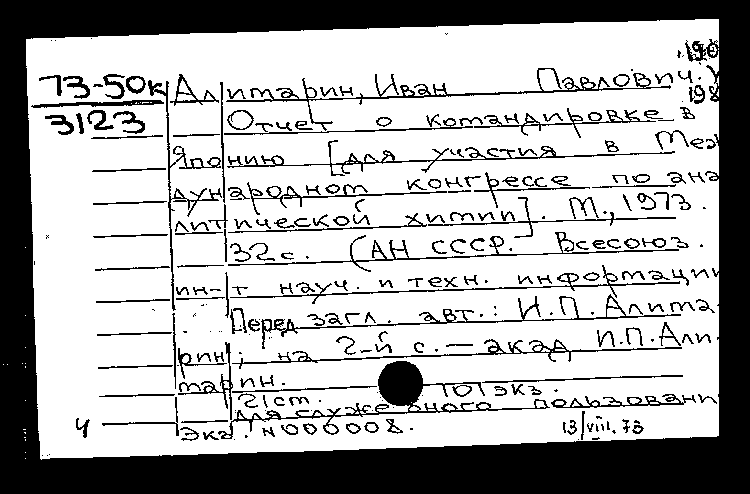 190
73-50к Алимарин, Иван Павлович.
198
3123 Отчет о командировке в
Японию [для участия в Меж
дународном конгрессе по ана
литической химии]. М., 1973.
32с. (АН СССР. Всесоюз.
ин-т науч. и техн. информации
Перед загл. авт.: И.П. Алима-
рин; на 2-й с. — акад. И.П. Али-
марин.
21 ст. 101 экз.
Для служебного пользовани
Ч Экз. № 000008. 13/VIII.73